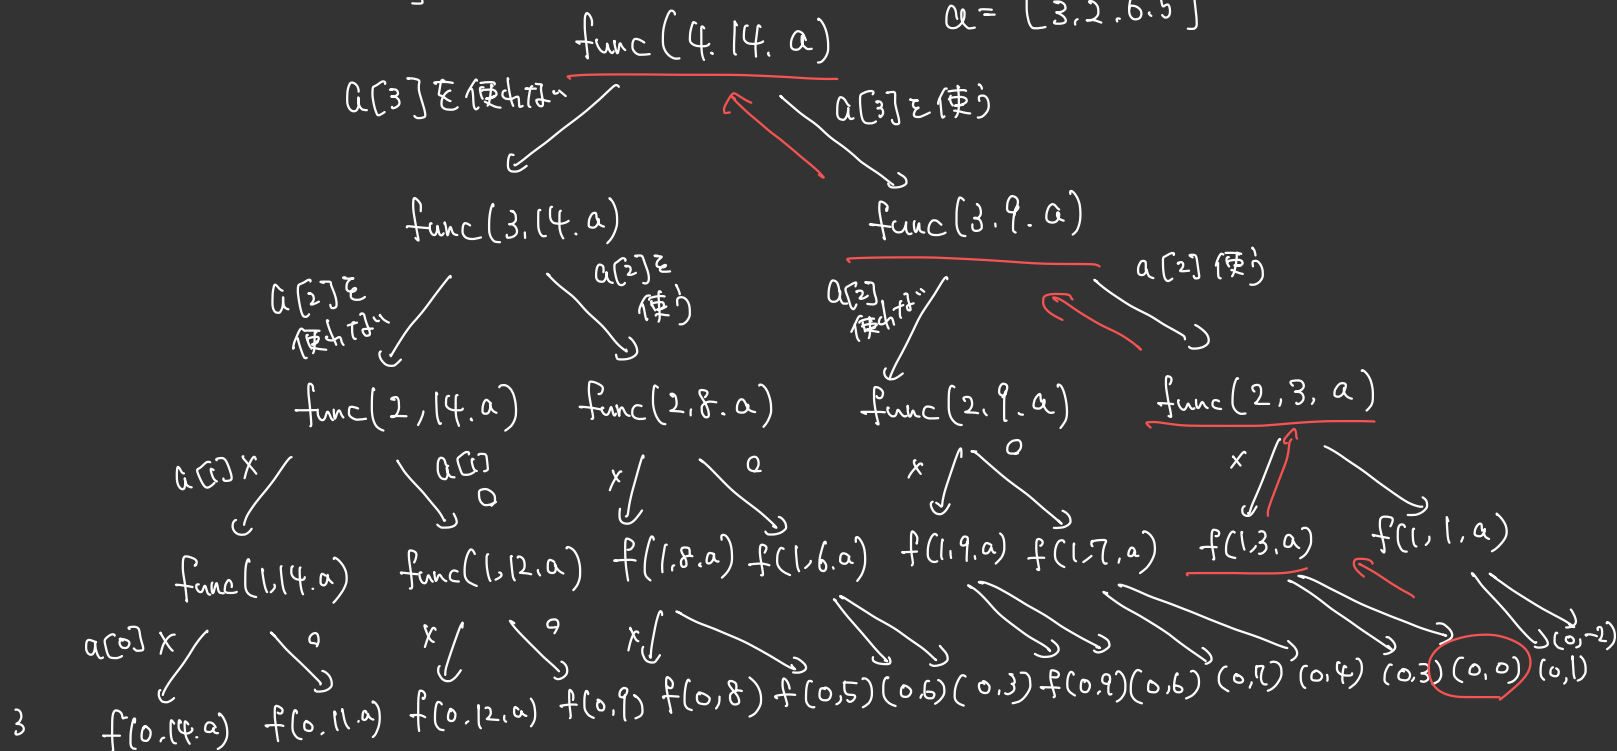 a = [3.2.6.5]
func(4.14.a)
a[3]を使わない
a[3]を使う
func(3,14.a)
func(3.9.a)
a[2]を
使わない
a[2]を
使う
a[2]
使わない
a[2]使う
func(2,14.a)
func(2,8.a)
func(2.9.a)
func(2,3,a)
a[1]x
a[1]
o
x
o
x
o
x
func(1,14.a)
func(1,12.a)
f(1,8.a)
f(1,6.a)
f(1,9.a)
f(1,7,a)
f(1,3.a)
f(1,1,a)
a[0]x
o
x
o
x
f(0.14.a)
f(0.11.a)
f(0.12.a)
f(0,9)
f(0,8)
f(0,5)
(0,6)
(0,3)
f(0.9)
(0,6)
(0,7)
(0,4)
(0,3)
(0,0)
(0,1)
(0,-2)
3